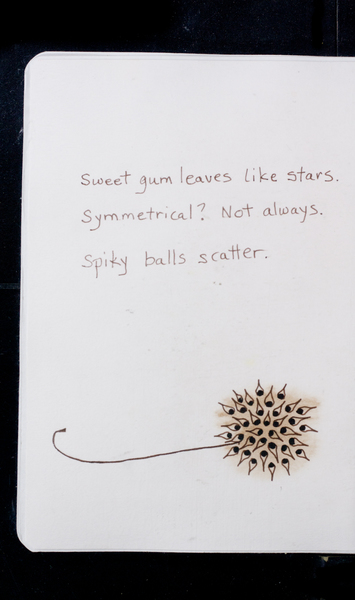 Sweet gum leaves like stars.
Symmetrical? Not always.
Spiky balls scatter.